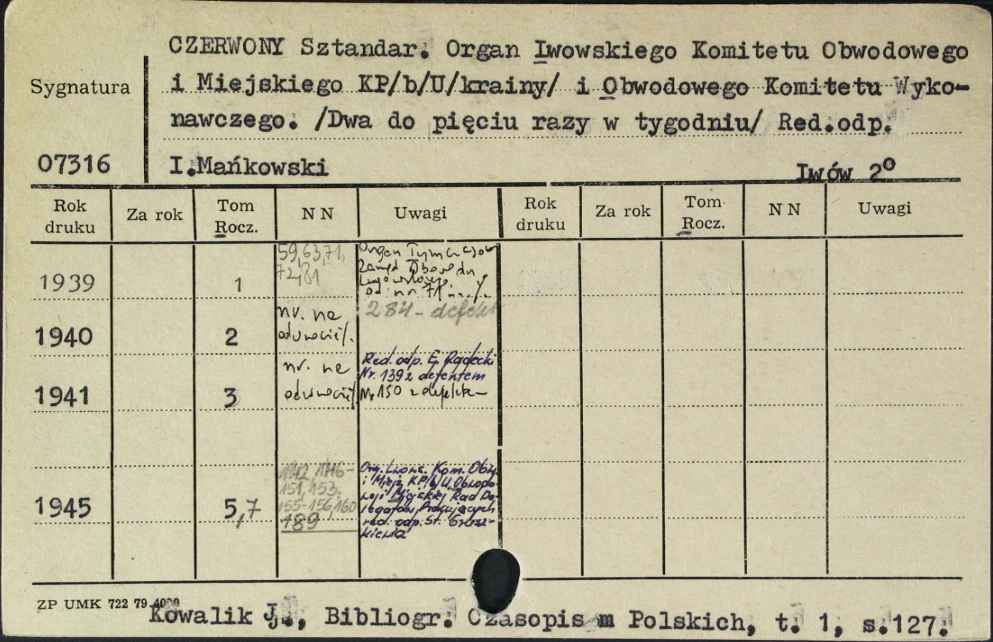 CZERWONY Sztandar. Organ Lwowskiego Komitetu Obwodowego
i Miejskiego KP/b/U/krainy/ i Obwodowego Komitetu Wyko-
nawczego. /Dwa do pięciu razy w tygodniu/ Red.odp.
I.Mańkowski
Lwów 2°
Sygnatura
07316
Rok druku Za rok Tom Rocz. N N Uwagi Rok druku Za rok Tom Rocz. N N Uwagi
1939 1 59,63,71,
72,81
Organ Tymczasow
Zarząd Obwodu
Lwowskiego
od nr 71
1940 2 nr. na
odwrocie/.
284 - defekt
1941 3 nr. na
odwrocie/.
Red. odp. E. Radecki
Nr. 139 z defektem
Nr 150 z defekte-
1945 5,7 142 146-
151, 153,
155-156, 160
189
Org. Lwow. Kom. Obw.
i Miejs. KP/b/U. Obwodo
wej i Miejskiej Rad De
legatów Pracujących
red. odp. St.
ZP UMK 722 79 4000
Kowalik J., Bibliogr. Czasopism Polskich, t. 1, s.127.